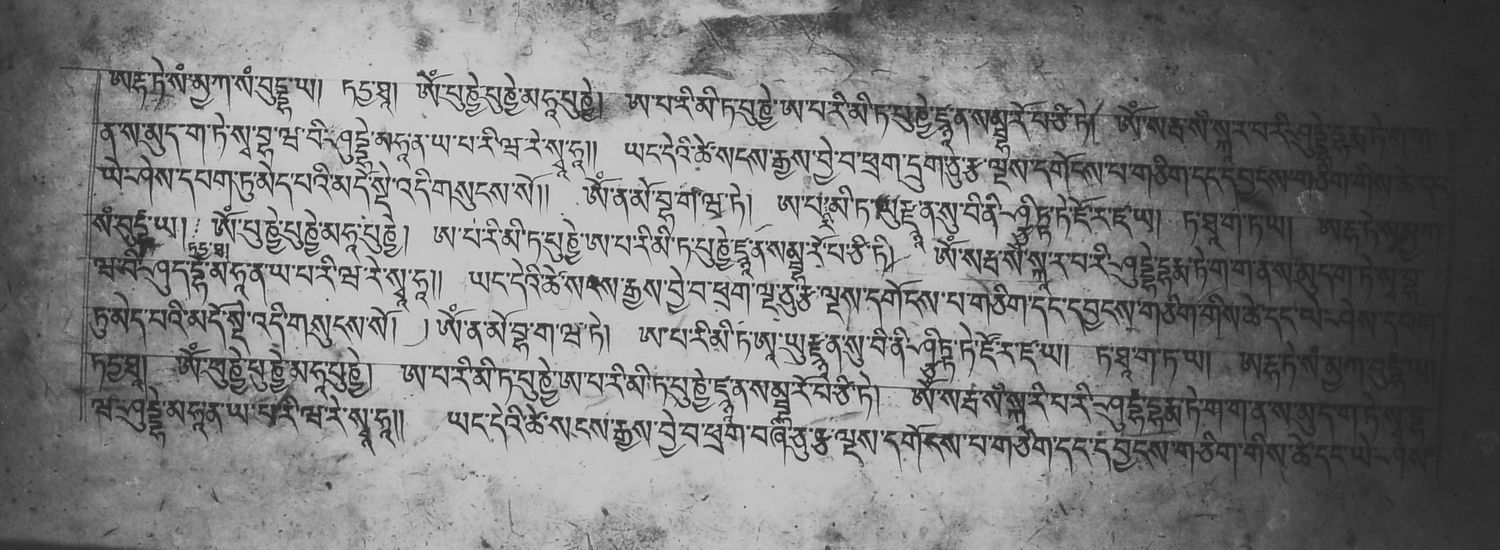 ཨརྷ་ཏེ་སཾ་མྱ་ཀ་སཾ་བུདྡྷ་ཡ། ཏདྱ་ཐཱ། ཨོཾ་པུཎྱེ་པུཎྱེ་མ་ཧཱ་པུཎྱེ། ཨ་པ་རི་མི་ཏ་པུཎྱེ་ཨ་པ་རི་མི་ཏ་པུཎྱེ་ཛྙཱ་ན་སམྦྷཱ་རོ་པ་ཙི་ཏེ། ཨོཾ་སརྦ་སཾ་སྐཱ་ར་པ་རི་ཤུདྡྷེ་དྷརྨ་ཏེ་ག་ག
ན་ས་མུད་ག་ཏེ་སྭ་བྷ་ཝ་བི་ཤུདྡྷེ་མ་ཧཱ་ན་ཡ་པ་རི་ཝ་རེ་སྭཱ་ཧཱ།། ཡང་དེའི་ཚེ་སངས་རྒྱས་བྱེ་བ་ཕྲག་དྲུག་ཅུ་རྩ་ལྔས་དགོངས་པ་གཅིག་དང་དབྱངས་གཅིག་གིས་ཚེ་དང
ཡེ་ཤེས་དཔག་ཏུ་མེད་པའི་མདོ་སྡེ་འདི་གསུངས་སོ།། ཨོཾ་ན་མོ་བྷ་ག་ཝ་ཏེ། ཨ་པ་རི་མི་ཏ་ཨཱ་ཡུ་ཛྙཱ་ན་སུ་བི་ནི་ཤྩི་ཏ་ཏེ་ཛོ་ར་ཛ་ཡ། ཏ་ཐཱ་ག་ཏ་ཡ། ཨརྷ་ཏེ་སམྱ་ཀ
སཾ་བུདྡྷ་ཡ། ཏདྱ་ཐཱ། ཨོཾ་པུཎྱེ་པུཎྱེ་མ་ཧཱ་པུཎྱེ། ཨ་པ་རི་མི་ཏ་པུཎྱེ་ཨ་པ་རི་མི་ཏ་པུཎྱེ་ཛྙཱ་ན་སམྦྷཱ་རོ་པ་ཙི་ཏེ། ཨོཾ་སརྦ་སཾ་སྐཱ་ར་པ་རི་ཤུདྡྷེ་དྷརྨ་ཏེ་ག་ག་ན་ས་མུད་ག་ཏེ་སྭ་བྷ
ཝ་བི་ཤུད་དྷེ་མ་ཧཱ་ན་ཡ་པ་རི་ཝ་རེ་སྭཱ་ཧཱ།། ཡང་དེའི་ཚེ་སངས་རྒྱས་བྱེ་བ་ཕྲག་ལྔ་ཅུ་རྩ་ལྔས་དགོངས་པ་གཅིག་དང་དབྱངས་གཅིག་གིས་ཚེ་དང་ཡེ་ཤེས་དཔག
ཏུ་མེད་པའི་མདོ་སྡེ་འདི་གསུངས་སོ། ། ཨོཾ་ན་མོ་བྷ་ག་ཝ་ཏེ། ཨ་པ་རི་མི་ཏ་ཨཱ་ཡུ་ཛྙཱ་ན་སུ་བི་ནི་ཤྩི་ཏ་ཏེ་ཛོ་ར་ཛ་ཡ། ཏ་ཐཱ་ག་ཏ་ཡ། ཨརྷ་ཏེ་སཾ་མྱ་ཀ་བུདྡྷ་ཡ།
ཏདྱ་ཐཱ། ཨོཾ་པུཎྱེ་པུཎྱེ་མ་ཧཱ་པུཎྱེ། ཨ་པ་རི་མི་ཏ་པུཎྱེ་ཨ་པ་རི་མི་ཏ་པུཎྱེ་ཛྙཱ་ན་སམྦྷཱ་རོ་པ་ཙི་ཏེ། ཨོཾ་སརྦ་སཾ་སྐཱ་རི་པ་རི་ཤུདྡྷ་དྷརྨ་ཏེ་ག་ག་ན་ས་མུད་ག་ཏེ་སྭ་བྷ
ཝ་ཤུདྡྷེ་མ་ཧཱ་ན་ཡ་པ་རི་ཝ་རེ་སྭཱ་ཧཱ།། ཡང་དེའི་ཚེ་སངས་རྒྱས་བྱེ་བ་ཕྲག་བཞི་ཅུ་རྩ་ལྔས་དགོངས་པ་གཅིག་དང་དབྱངས་གཅིག་གིས་ཚེ་དང་ཡེ་ཤེས